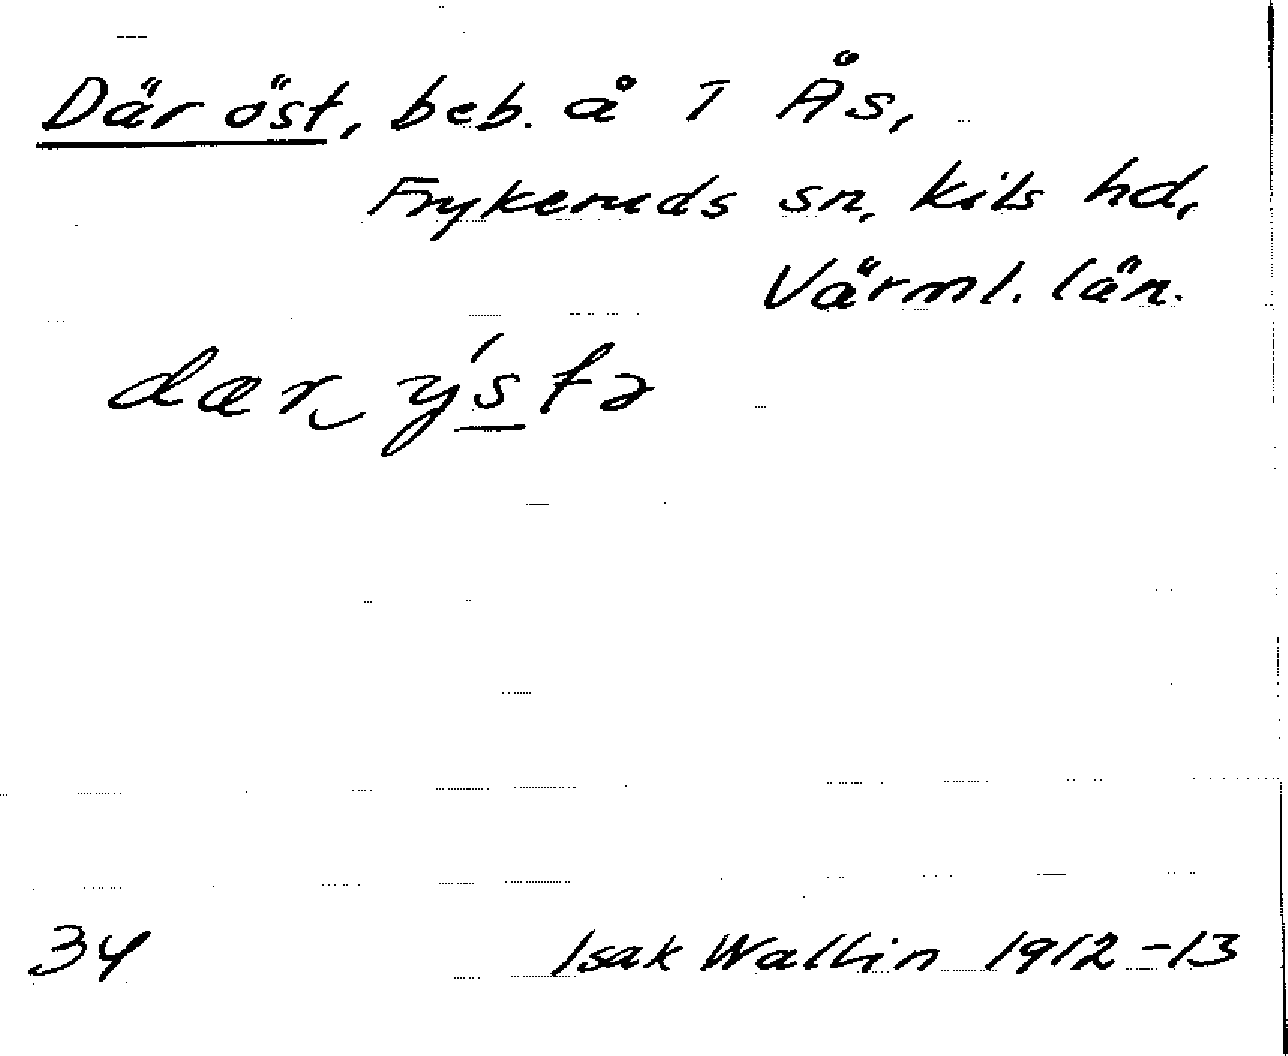 Där öst, beb. å 1 Ås,
Frykeruds sn, Kils hd,
Värml. län.
dær ýstə
34 Isak Wallin 1912-13